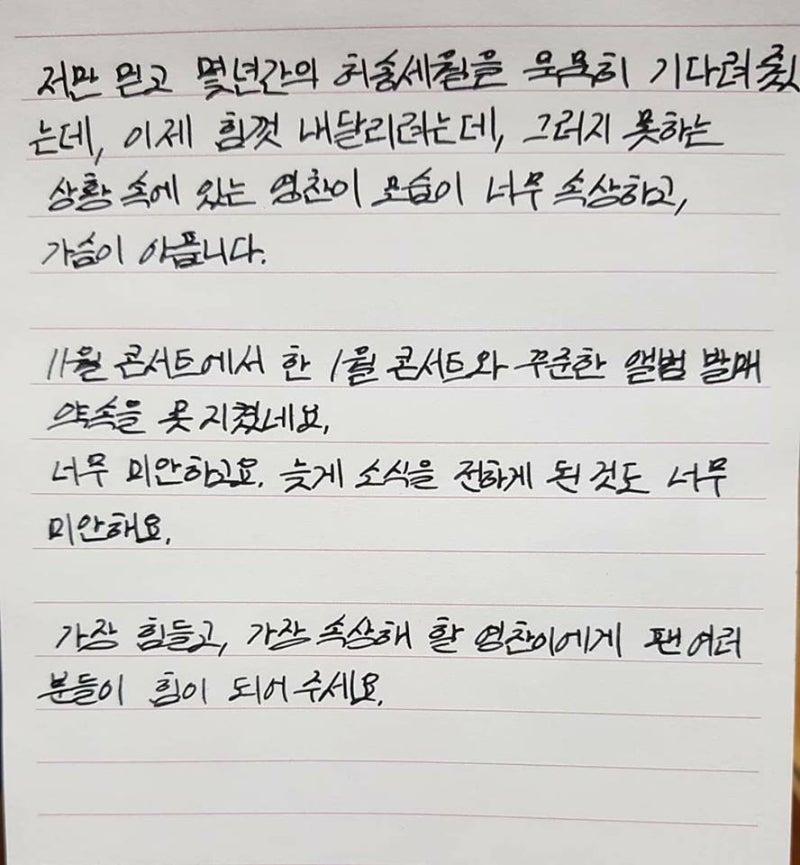 저만 믿고 몇년간의 허송세월을 묵묵히 기다려줬
는데, 이제 힘껏 내달리려는데, 그러지 못하는
상황 속에 있는 영찬이 모습이 너무 속상하고,
가슴이 아픕니다.
11월 콘서트에서 한 1월 콘서트와 꾸준한 앨범 발매
약속을 못 지켰네요.
너무 미안하고요. 늦게 소식을 전하게 된 것도 너무
미안해요.
가장 힘들고, 가장 속상해 할 영찬이에게 팬 여러
분들이 힘이 되어 주세요.